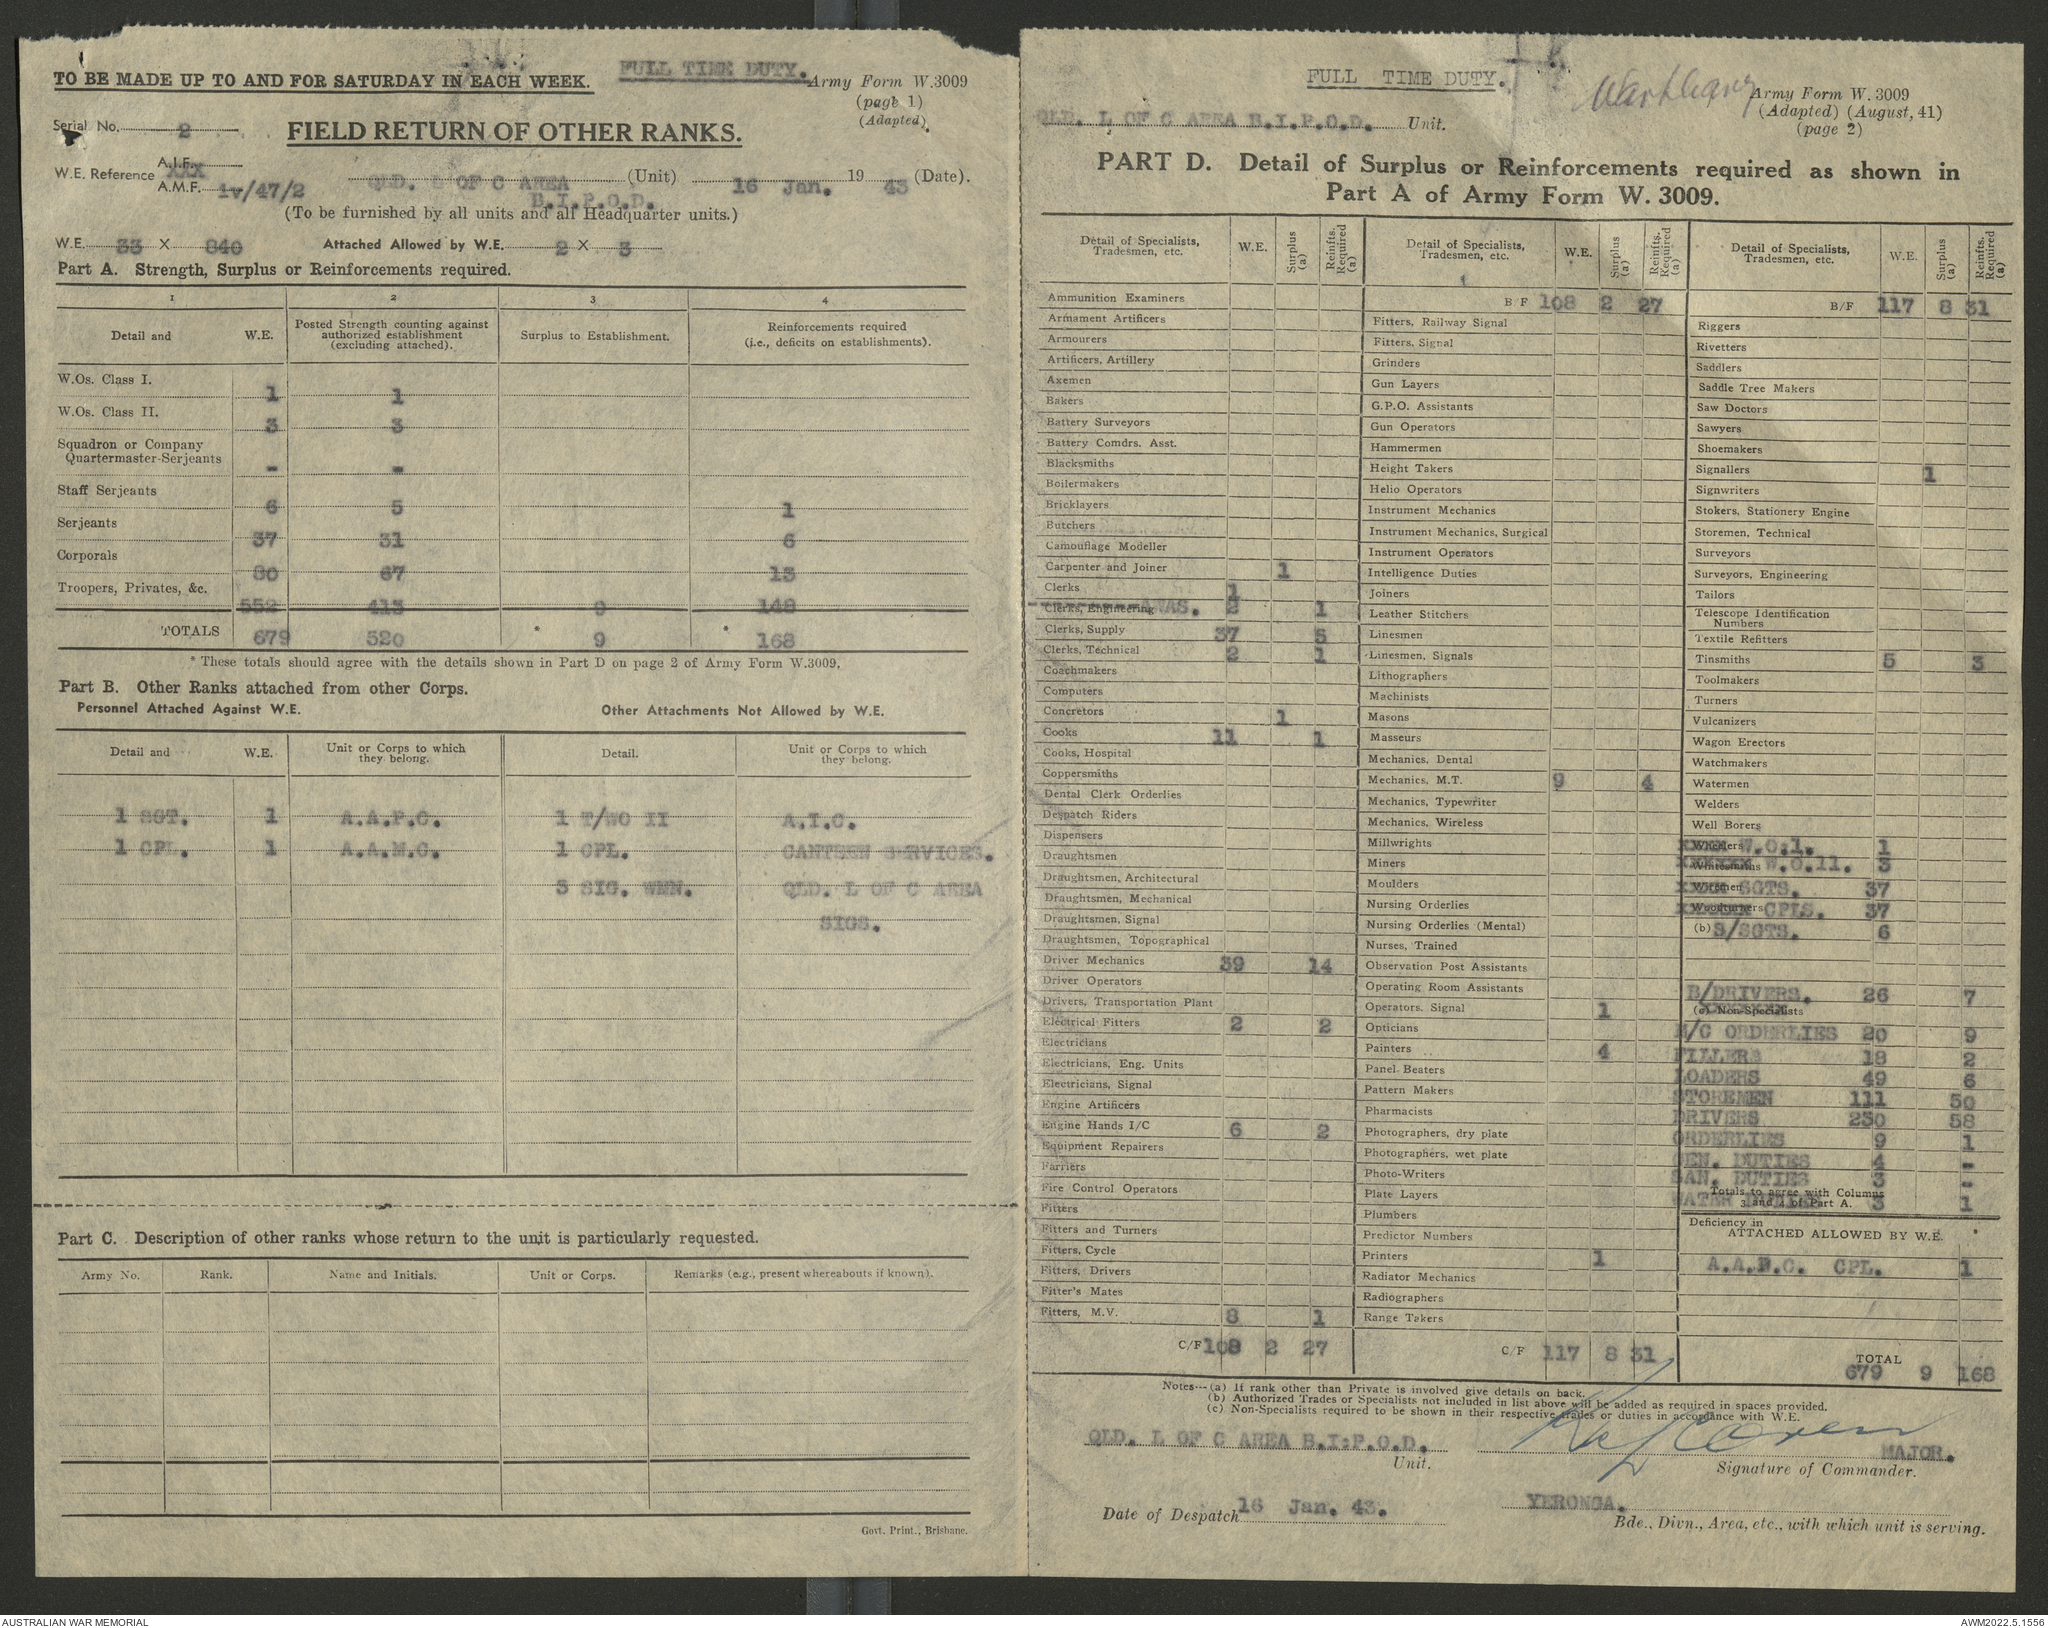 TO BE MADE UP TO AND FOR SATURDAY IN EACH WEEK.
FULL TIME DUTY.
Army Form W.3009
(page 1)
(Adapted)
Serial No. 2
FIELD RETURN OF OTHER RANKS.
W.E. Reference A.I.F. XXX
A.M.F. 1v/47/2
QLD. L OF C AREA B.I.P.O.D. (Unit) 16 Jan. 19 43 (Date).
(To be furnished by all units and all Headquarter units.)
W.E. 33 X 840 Attached Allowed by W.E. 2 X 3
Part A. Strength, Surplus or Reinforcements required.
1 2 3 4
Detail and W.E. Posted Strength counting against authorized establishment (excluding attached). Surplus to Establishment. Reinforcements required (i.e., deficits on establishments).
W.Os. Class I. 1 1
W.Os. Class II. 3 3
Squadron or Company Quartermaster-Serjeants - -
Staff Serjeants 6 5 1
Serjeants 37 31 6
Corporals 80 67 13
Troopers, Privates, &c. 552 413 9 148
TOTALS 679 520 * 9 * 168
* These totals should agree with the details shown in Part D on page 2 of Army Form W.3009.
Part B. Other Ranks attached from other Corps.
Personnel Attached Against W.E. Other Attachments Not Allowed by W.E.
Detail and W.E. Unit or Corps to which they belong. Detail. Unit or Corps to which they belong.
1 SGT. 1 A.A.P.C. 1 T/WO II A.I.C.
1 CPL. 1 A.A.M.C. 1 CPL. CANTEEN SERVICES.
3 SIG. WMN. QLD. L OF C AREA
SIGS.
Part C. Description of other ranks whose return to the unit is particularly requested.
Army No. Rank. Name and Initials. Unit or Corps. Remarks (e.g., present whereabouts if known).
Govt. Print., Brisbane.
FULL TIME DUTY.
Army Form W. 3009
(Adapted) (August, 41)
(page 2)
QLD. L OF C AREA B.I.P.O.D. Unit.
PART D. Detail of Surplus or Reinforcements required as shown in
Part A of Army Form W. 3009.
Detail of Specialists, Tradesmen, etc. W.E. Surplus (a) Reinfts. Required (a)
Ammunition Examiners
Armament Artificers
Armourers
Artificers, Artillery
Axemen
Bakers
Battery Surveyors
Battery Comdrs. Asst.
Blacksmiths
Boilermakers
Bricklayers
Butchers
Camouflage Modeller
Carpenter and Joiner 1
Clerks 1
Clerks, Engineering AWAS. 2 1
Clerks, Supply 37 5
Clerks, Technical 2 1
Coachmakers
Computers
Concretors 1
Cooks 11 1
Cooks, Hospital
Coppersmiths
Dental Clerk Orderlies
Despatch Riders
Dispensers
Draughtsmen
Draughtsmen, Architectural
Draughtsmen, Mechanical
Draughtsmen, Signal
Draughtsmen, Topographical
Driver Mechanics 39 14
Driver Operators
Drivers, Transportation Plant
Electrical Fitters 2 2
Electricians
Electricians, Eng. Units
Electricians, Signal
Engine Artificers
Engine Hands I/C 6 2
Equipment Repairers
Farriers
Fire Control Operators
Fitters
Fitters and Turners
Fitters, Cycle
Fitters, Drivers
Fitter's Mates
Fitters, M.V. 8 1
C/F 108 2 27
Detail of Specialists, Tradesmen, etc. W.E. Surplus (a) Reinfts. Required (a)
B F 108 2 27
Fitters, Railway Signal
Fitters, Signal
Grinders
Gun Layers
G.P.O. Assistants
Gun Operators
Hammermen
Height Takers
Helio Operators
Instrument Mechanics
Instrument Mechanics, Surgical
Instrument Operators
Intelligence Duties
Joiners
Leather Stitchers
Linesmen
Linesmen, Signals
Lithographers
Machinists
Masons
Masseurs
Mechanics, Dental
Mechanics, M.T. 9 4
Mechanics, Typewriter
Mechanics, Wireless
Millwrights
Miners
Moulders
Nursing Orderlies
Nursing Orderlies (Mental)
Nurses, Trained
Observation Post Assistants
Operating Room Assistants
Operators. Signal 1
Opticians
Painters 4
Panel Beaters
Pattern Makers
Pharmacists
Photographers, dry plate
Photographers, wet plate
Photo-Writers
Plate Layers
Plumbers
Predictor Numbers
Printers 1
Radiator Mechanics
Radiographers
Range Takers
C/F 117 8 31
Detail of Specialists, Tradesmen, etc. W.E. Surplus (a) Reinfts. Required (a)
B/F 117 8 31
Riggers
Rivetters
Saddlers
Saddle Tree Makers
Saw Doctors
Sawyers
Shoemakers
Signallers 1
Signwriters
Stokers, Stationery Engine
Storemen, Technical
Surveyors
Surveyors, Engineering
Tailors
Telescope Identification Numbers
Textile Refitters
Tinsmiths 5 3
Toolmakers
Turners
Vulcanizers
Wagon Erectors
Watchmakers
Watermen
Welders
Well Borers
Wheelers W.O.1. 1
Whitesmiths W.O.11. 3
Wiremen SGTS. 37
Woodturners CPLS. 37
(b) S/SGTS. 6
B/DRIVERS. 26 7
(c) Non-Specialists
E/C ORDERLIES 20 9
FILLERS 18 2
LOADERS 49 6
STOREMEN 111 50
DRIVERS 230 58
ORDERLIES 9 1
GEN. DUTIES 4 -
SAN. DUTIES 3 -
WATER 3 1
Totals to agree with Columns 3 and 4 of Part A.
Deficiency in
ATTACHED ALLOWED BY W.E.
A.A.M.C. CPL. 1
TOTAL 679 9 168
Notes—(a) If rank other than Private is involved give details on back.
(b) Authorized Trades or Specialists not included in list above will be added as required in spaces provided.
(c) Non-Specialists required to be shown in their respective trades or duties in accordance with W.E.
QLD. L OF C AREA B.I.P.O.D.
Unit.
MAJOR.
Signature of Commander.
Date of Despatch 16 Jan. 43.
YERONGA.
Bde., Divn., Area, etc., with which unit is serving.
AUSTRALIAN WAR MEMORIAL
AWM2022.5.1556